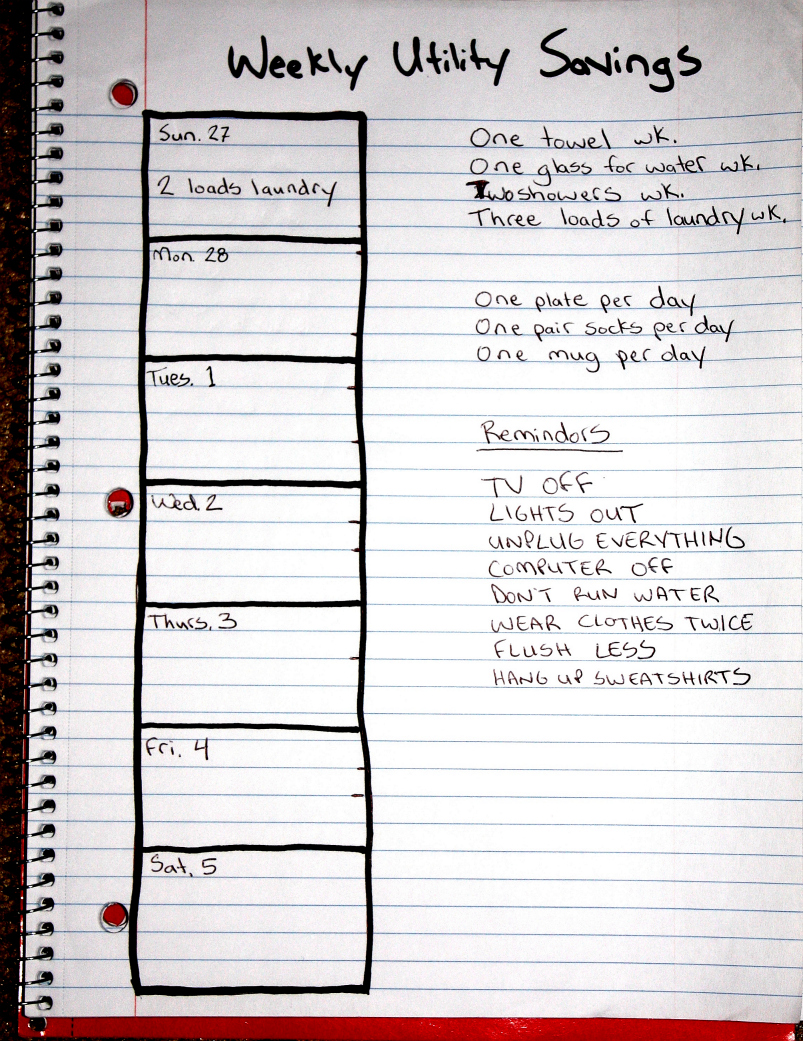 Weekly Utility Savings
Sun. 27
2 loads laundry
Mon. 28
Tues. 1
Wed. 2
Thurs. 3
Fri. 4
Sat. 5
One towel wk.
One glass for water wk.
Two showers wk.
Three loads of laundry wk.
One plate per day
One pair socks per day
One mug per day
Remindors
TV OFF
LIGHTS OUT
UNPLUG EVERYTHING
COMPUTER OFF
DON'T RUN WATER
WEAR CLOTHES TWICE
FLUSH LESS
HANG UP SWEATSHIRTS